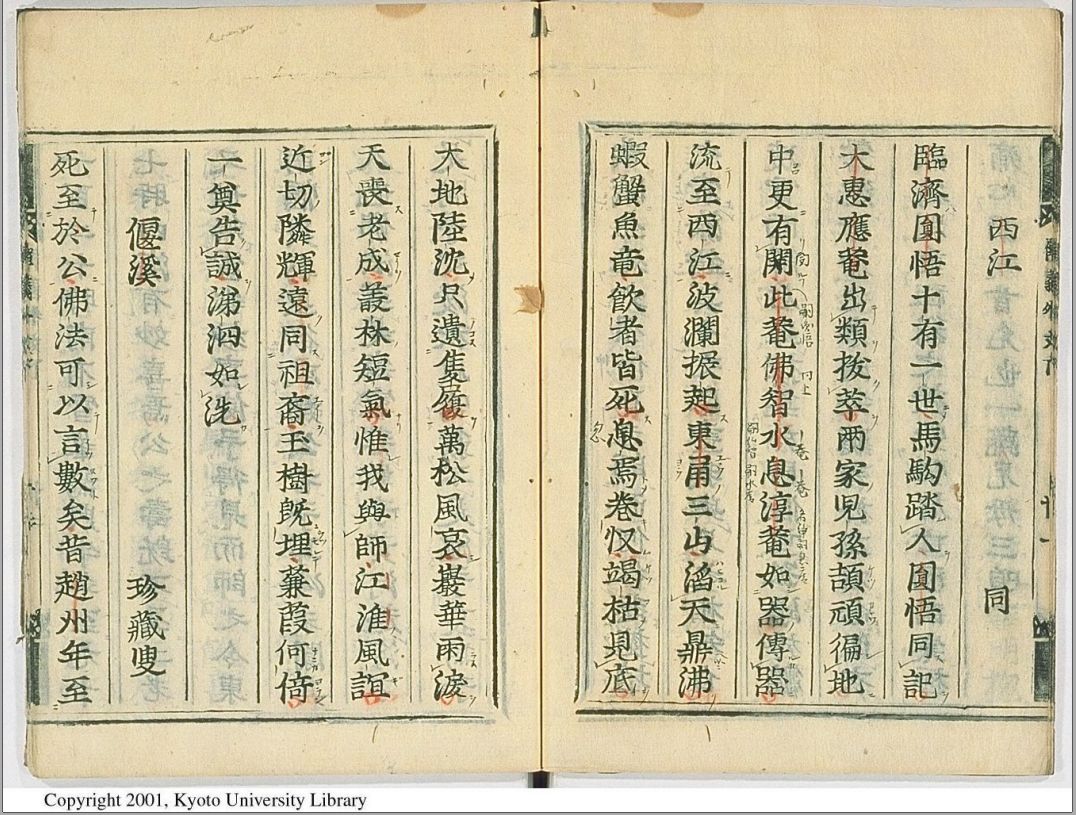 西江 同
臨濟圓悟十有一世馬駒踏人圓悟同記
大惠應菴出類拔萃兩家児孫頡頏徧地
中更有閑此菴佛智水息淳菴如器傳器
流至西江波瀾振起東甬三山滔天鼎沸
蝦蟹魚竜飲者皆死息焉卷収竭枯見底
大地陸沈只遺隻履萬松風哀巖華雨淚
天喪老成叢林短氣惟我與師江淮風誼
近切隣輝遠同祖裔玉樹既埋蒹葭何倚
一奠告誠涕泗如洗
偃溪 珍藏叟
死至於公佛法可以言數矣昔趙州年至
Copyright 2001, Kyoto University Library